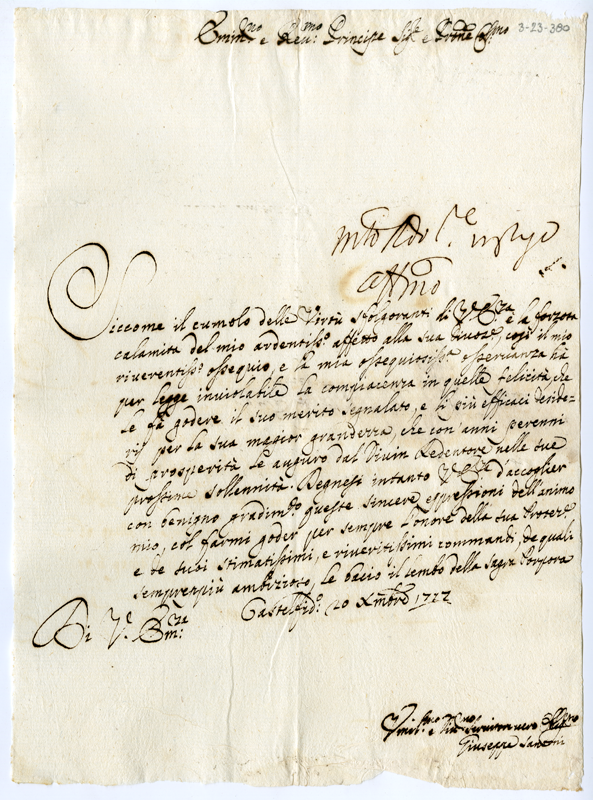 3-23-380
Emin:mo e Rev:mo Principe Sig:r e Prone
Siccome il cumolo delle Virtù sfolgoranti di V. Em:za è la forzosa
calamita del mio ardentiss:o affetto alla sua, così il mio
riverentiss:o ossequio, e la mia osservanza ha
per legge inviolabile la compiacenza in quelle felicità, che
le fà godere il suo merito segnalato, e li più efficaci deside-
rij per la sua magior grandezza che con anni perenni
di prosperità le auguro dal Divin Redentore nelle sue
prossime sollennità. Degnesi intanto V. Em:za d'accoglier
con benigno gradim:to queste sincere espressioni dell'animo
mio, col farmi goder per sempre l'onore della sua Protez:e
e de suoi stimatissimi, e riveritissimi commandi, de quali
semprepiù ambizioso, le bacio il lembo della Sagra Porpora
Di V. Em:za
Castelfid:o 20 Xmbre 1722
Umil:mo
Giuseppe